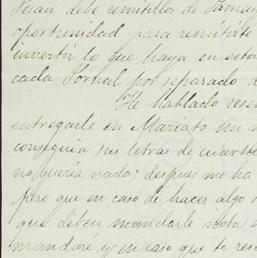 Juan debe remitirlos de Tama
oportunidad para remitirte
invertir lo que haya en esta
cada Jornal por separado d
He hablado rese
entregarle en Mariato un n
conseguia sus letras de cuarte
no queria nada; despues me ha
pero que en caso de hacer algo
que deben mandarle nota
mandaré y en caso que te res